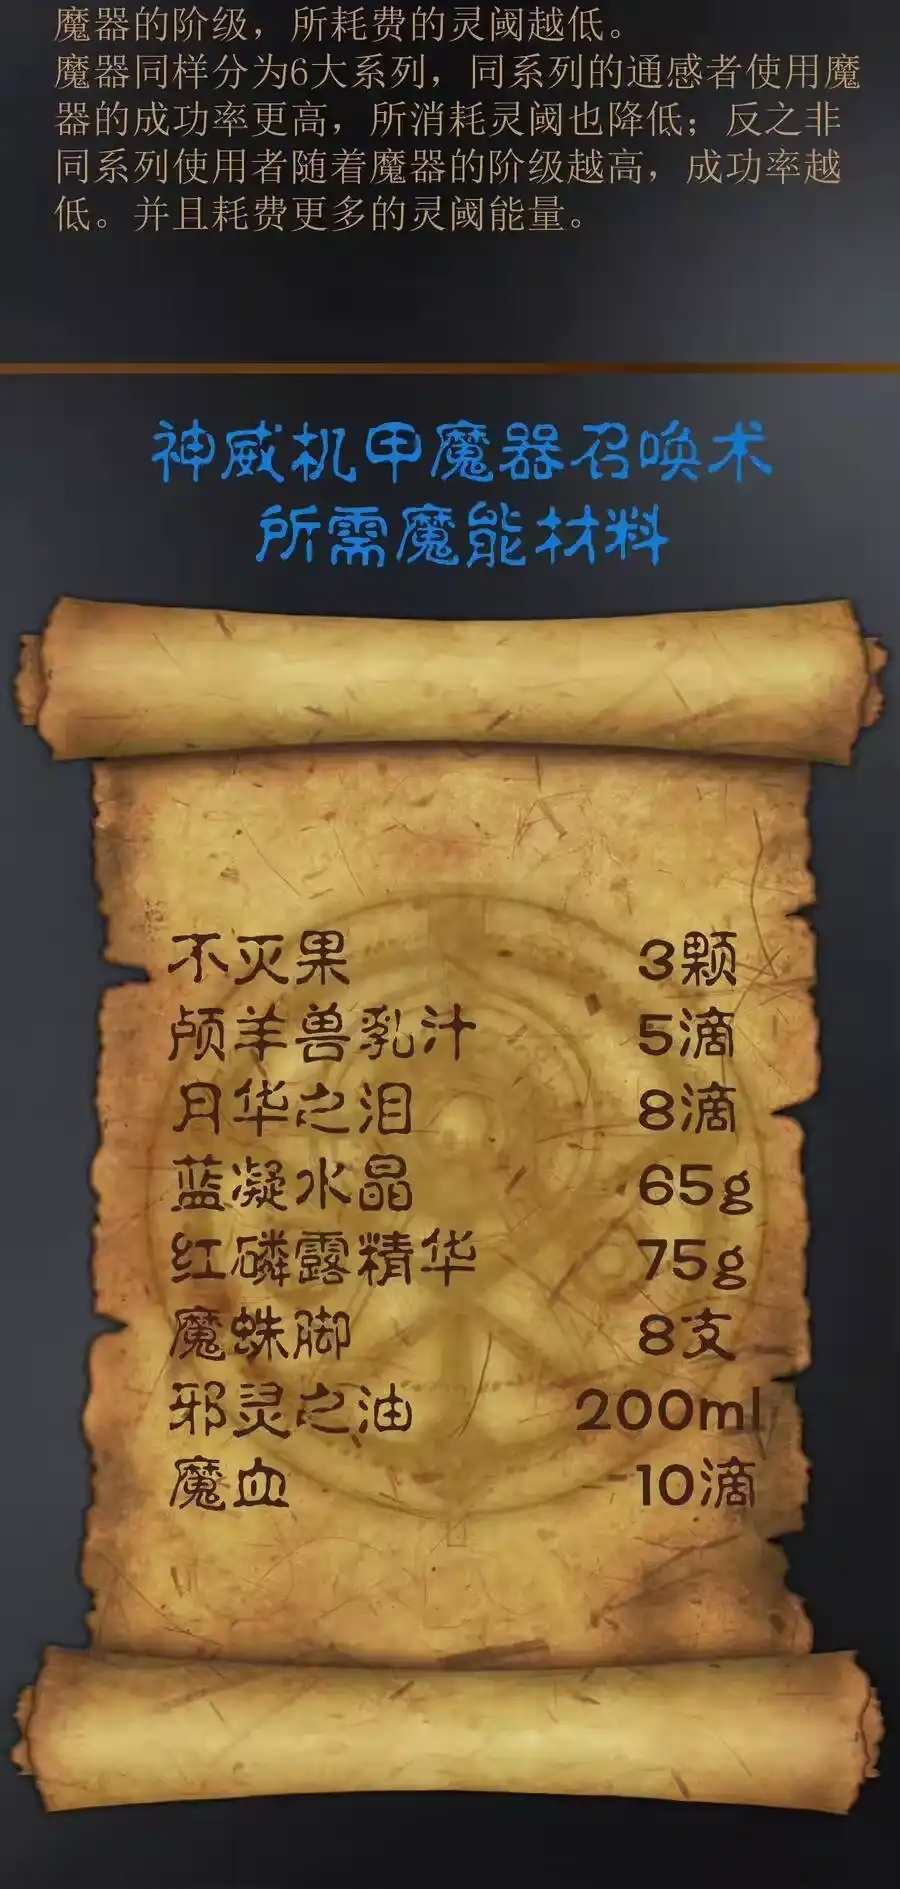 魔器的阶级，所耗费的灵阈越低。
魔器同样分为6大系列，同系列的通感者使用魔
器的成功率更高，所消耗灵阈也降低；反之非
同系列使用者随着魔器的阶级越高，成功率越
低。并且耗费更多的灵阈能量。
神威机甲魔器召唤术
所需魔能材料
不灭果 3颗
颅羊兽乳汁 5滴
月华之泪 8滴
蓝凝水晶 65g
红磷露精华 75g
魔蛛脚 8支
邪灵之油 200ml
魔血 10滴